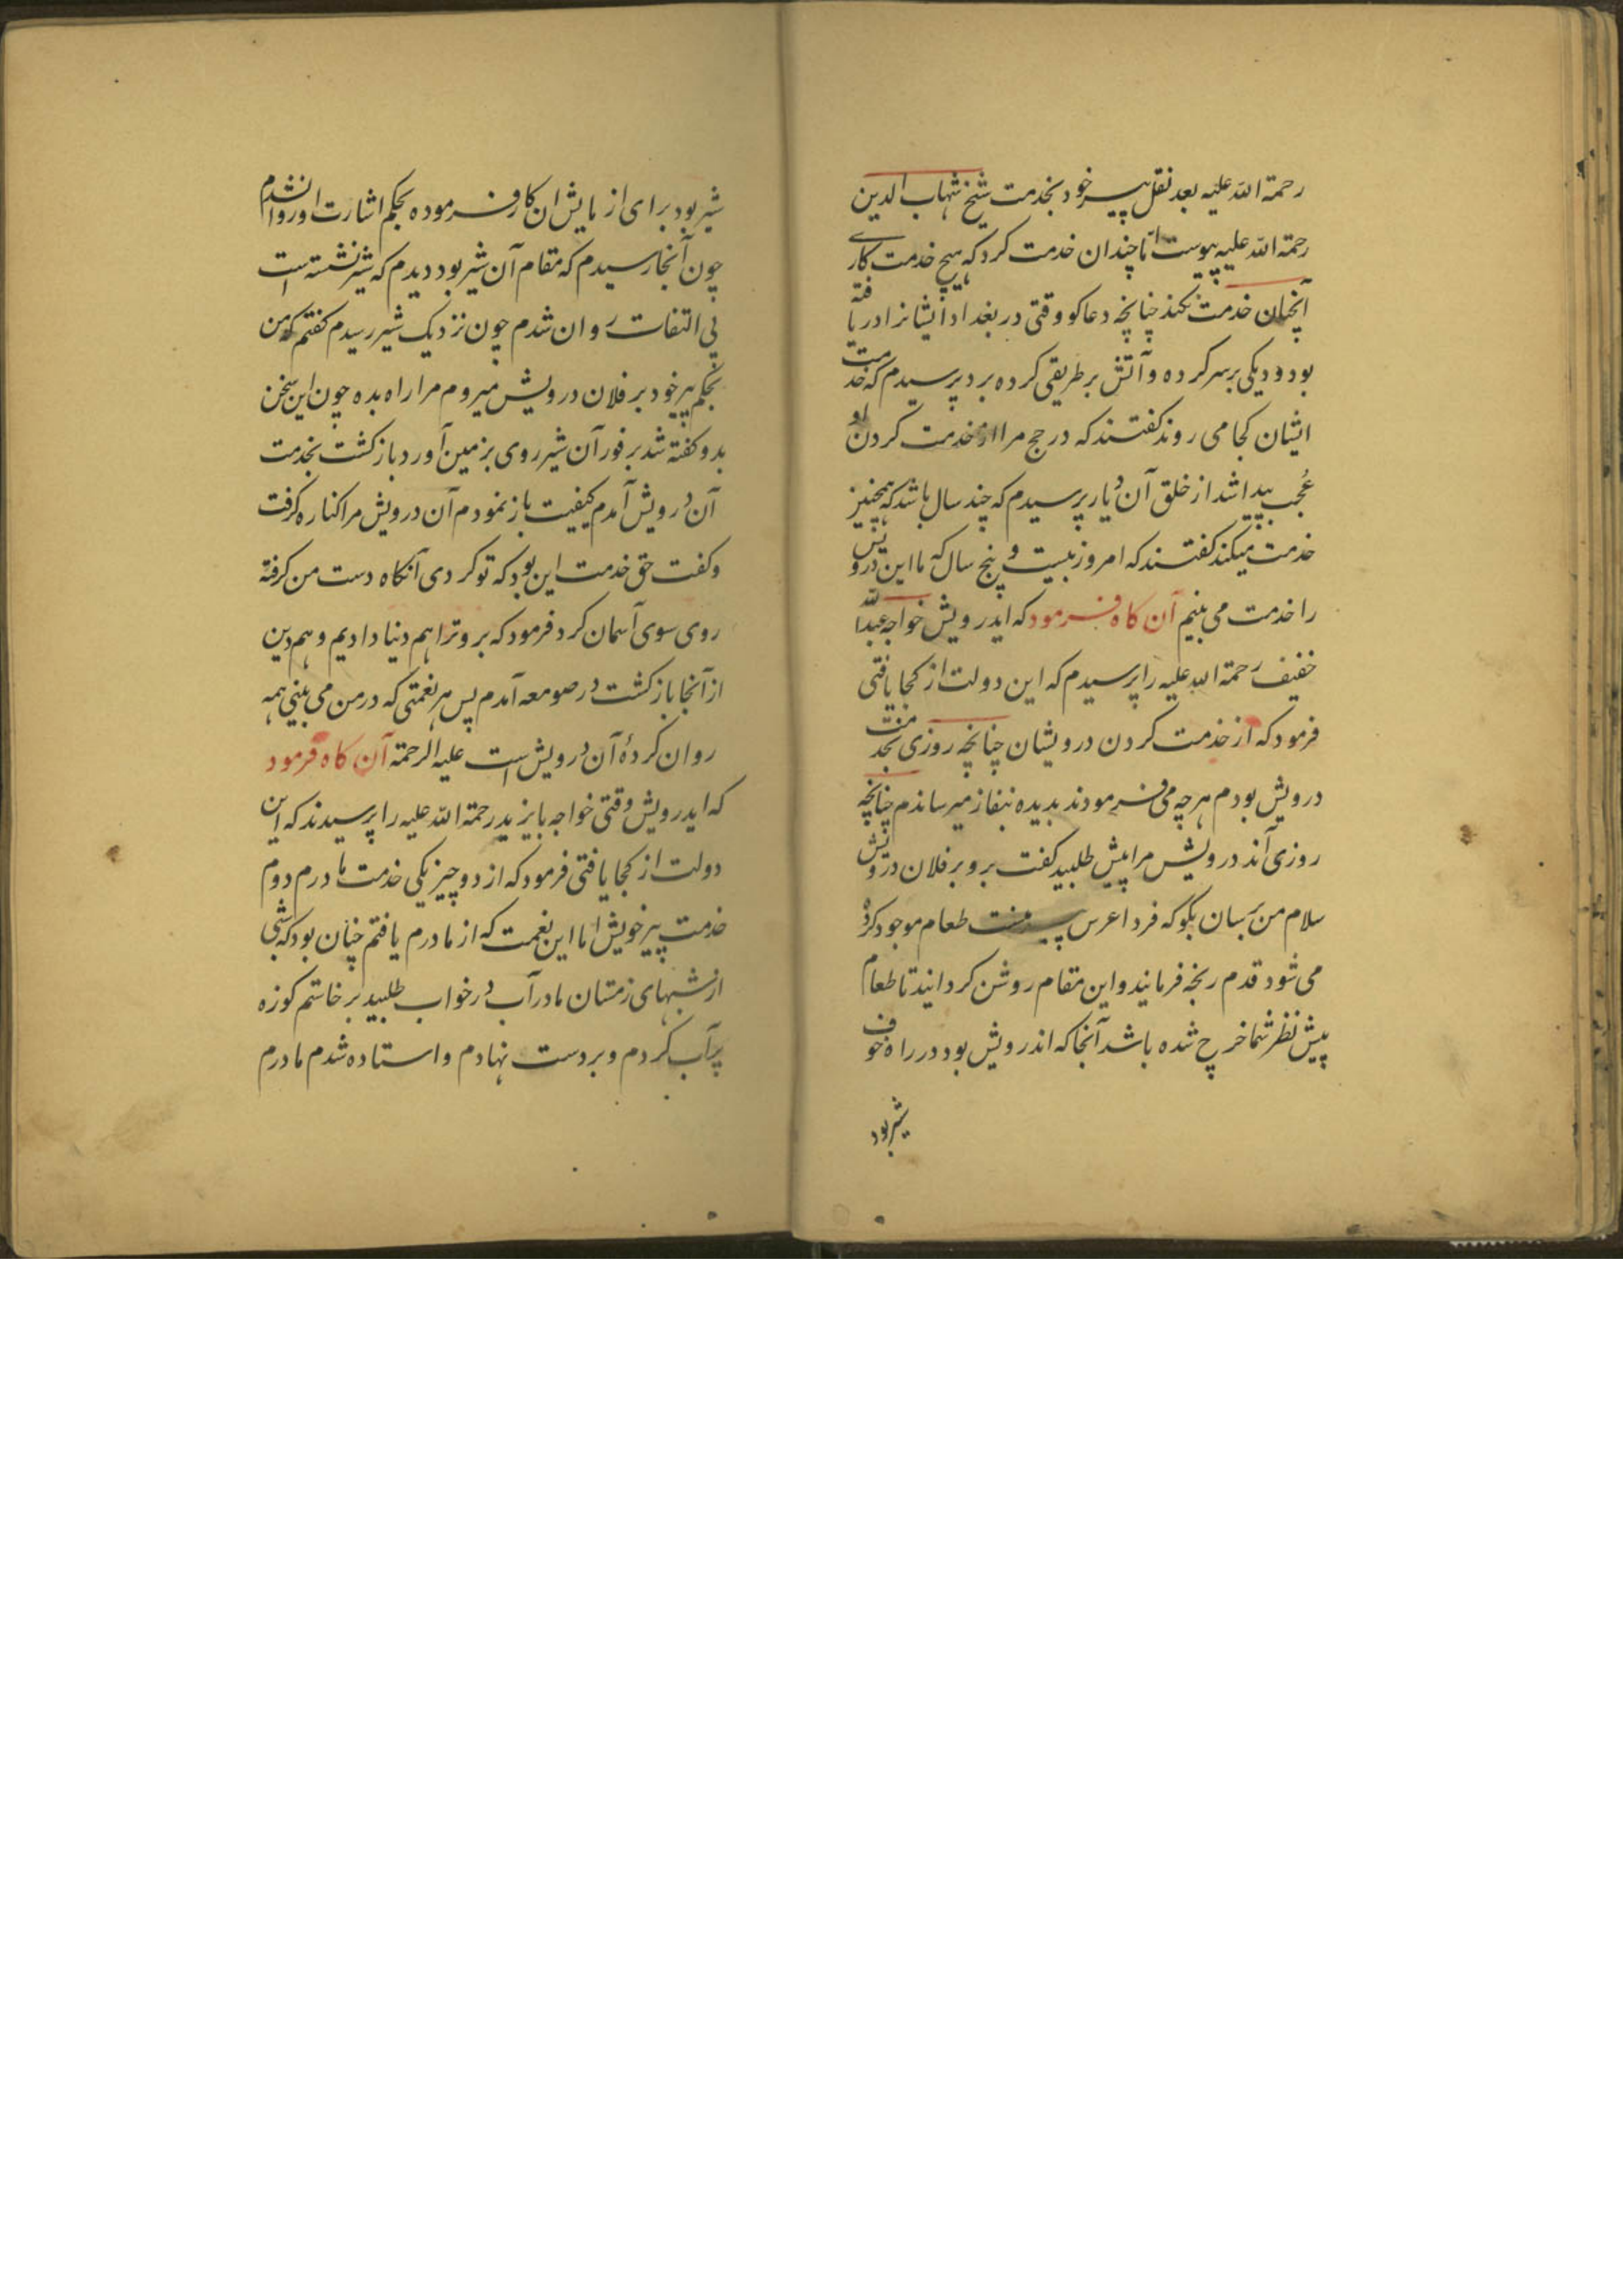 رحمة الله علیه بعد نقل پیر خود بخدمت شیخ شهاب الدین
رحمة الله علیه پیوست اما چندان خدمت کرد که هیچ خدمت کاری
آنچنان خدمت نکند چنانچه دعاکو وقتی در بغداد ایشانرا دریافته
بود و دیکی بر سر کرده و آتش بر طریقی کرده بر د پرسیدم که خدمت
ایشان کجا می روند کفتند که در حج مرا از خدمت کردن او
عجب پیدا شد از خلق آن دیار پرسیدم که چند سال باشد که همچنین
خدمت میکند کفتند که امروز بیست و پنج سال که ما این درویش
را خدمت می بینیم آن کاه فرمود که ایدرویش خواجه عبدالله
خفیف رحمة الله علیه را پرسیدم که این دولت از کجا یافتی
فرمود که از خدمت کردن درویشان چنانچه روزی بخدمت
درویش بودم هر چه می فرمودند بدیده بنفاز میرساندم چنانچه
روزی آندرویش مرا پیش طلبید کفت برو بر فلان درویش
سلام من برسان بکو که فردا عرس پیر منست طعام موجود کرده
می شود قدم رنجه فرمایند و این مقام روشن کردانند تا طعام
پیش نظر شما خرچ شده باشد آنجا که اندرویش بود در راه خوف
شیر بود
شیر بود برای ازمایش ان کار فرموده بحکم اشارت او روانشدم
چون آنجا رسیدم که مقام آن شیر بود دیدم که شیر نشسته است
بی التفات روان شدم چون نزدیک شیر رسیدم کفتم که من
بحکم پیر خود بر فلان درویش میروم مرا راه بده چون این سخن
بدو کفته شد بر فور آن شیر روی بر زمین آورد باز کشت بخدمت
آن درویش آمدم کیفیت باز نمودم آن درویش مرا کناره کرفت
و کفت حق خدمت این بود که تو کردی آنکاه دست من کرفته
روی سوی آسمان کرد فرمود که برو ترا هم دنیا دادیم و هم دین
از آنجا باز کشت در صومعه آمدم پس هر نعمتی که در من می بینی همه
روان کردهٔ آن درویش است علیه الرحمة آن کاه فرمود
که ایدرویش وقتی خواجه بایزید رحمة الله علیه را پرسیدند که این
دولت از کجا یافتی فرمود که از دو چیز یکی خدمت مادرم دوم
خدمت پیر خویش اما این نعمت که از مادرم یافتم چنان بود که شبی
از شبهای زمستان مادر آب در خواب طلبید برخاستم کوزه
پرآب کردم و بر دست نهادم و استاده شدم مادرم